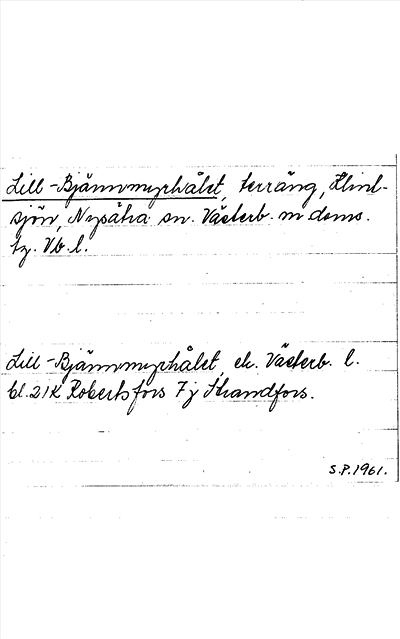 Lill-Bjännmyrhålet, terräng, Flind-
sjön, Nysätra sn. Västerb. m doms.
tg. Vb. l.
Lill-Bjännmyrhålet, ek. Västerb. l.
bl. 21K Robertsfors 7j Strandfors.
S.P. 1961.